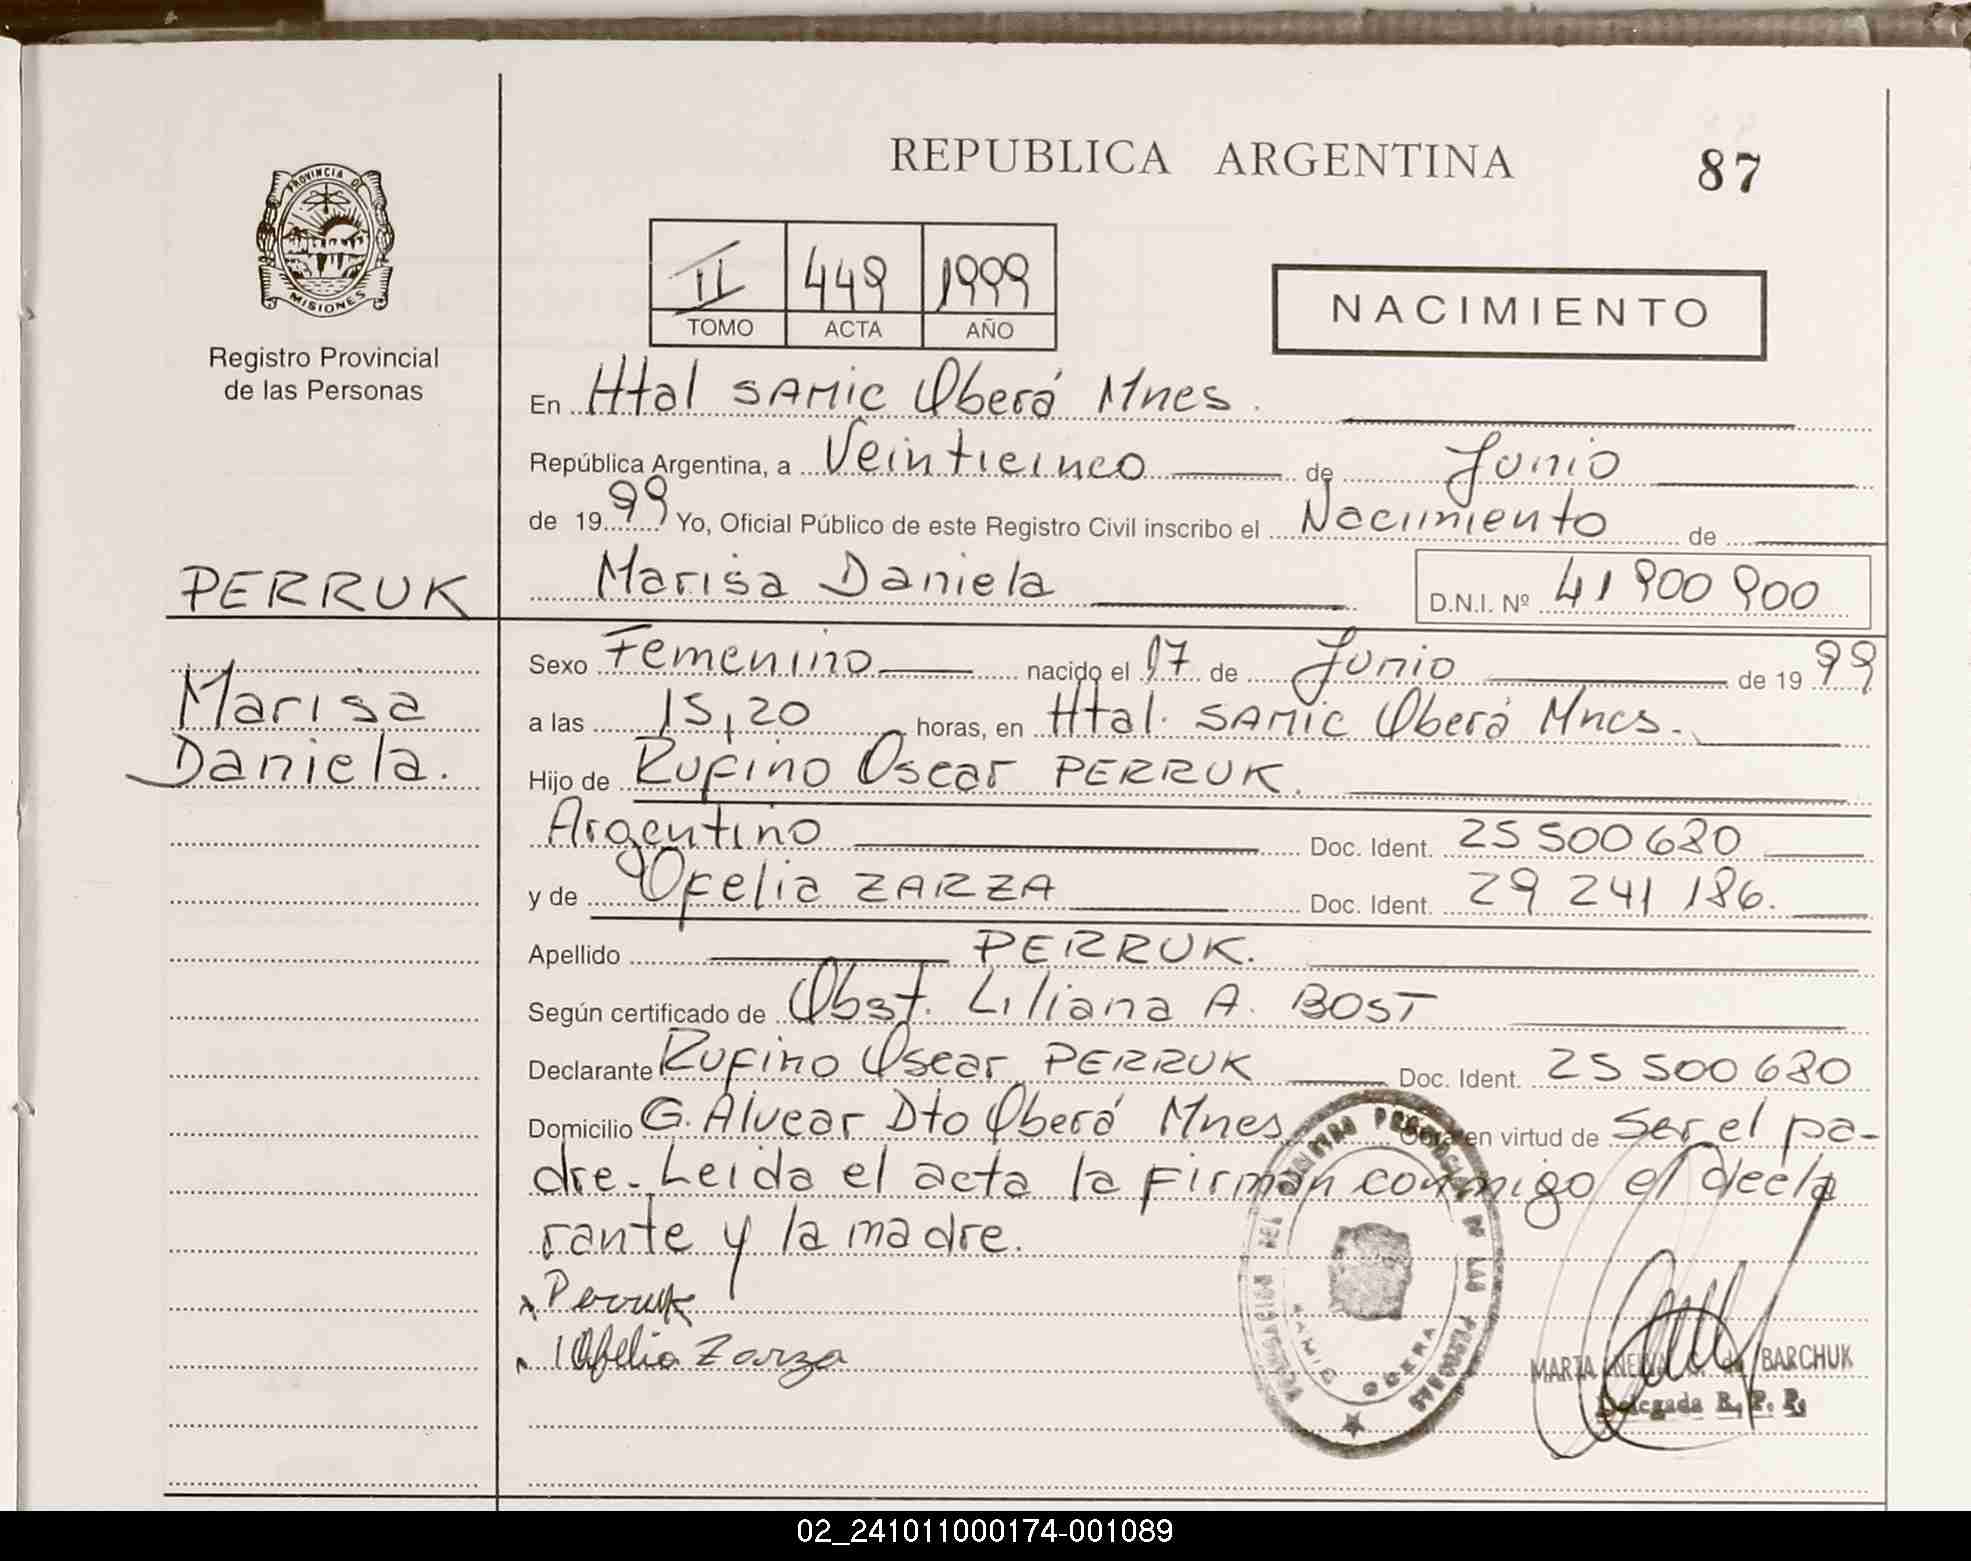 REPUBLICA ARGENTINA
87
PROVINCIA DE
MISIONES
Registro Provincial
de las Personas
II 449 1999
TOMO ACTA AÑO
NACIMIENTO
En Htal SAMIC Oberá Mnes.
República Argentina, a Veinticinco de Junio
de 1999 Yo, Oficial Público de este Registro Civil inscribo el Nacimiento de
PERRUK
Marisa Daniela D.N.I. Nº 41 900 900
Marisa
Daniela.
Sexo Femenino nacido el 17 de Junio de 1999
a las 15,20 horas, en Htal. SAMIC Oberá Mnes.
Hijo de Rufino Oscar PERRUK.
Argentino Doc. Ident. 25 500 680
y de Ofelia ZARZA Doc. Ident. 29 241 186.
Apellido PERRUK.
Según certificado de Obst. Liliana A. BOST
Declarante Rufino Oscar PERRUK Doc. Ident. 25 500 680
Domicilio G. Alvear Dto Oberá Mnes Obra en virtud de Ser el pa-
dre. Leida el acta la firman conmigo el decla
rante y la madre.
Perruk
Ofelia Zarza
PROVINCIAL DE LAS PERSONAS
SAMIC OBERA
MARTA de BARCHUK
Delegada R. P. P.
02_241011000174-001089